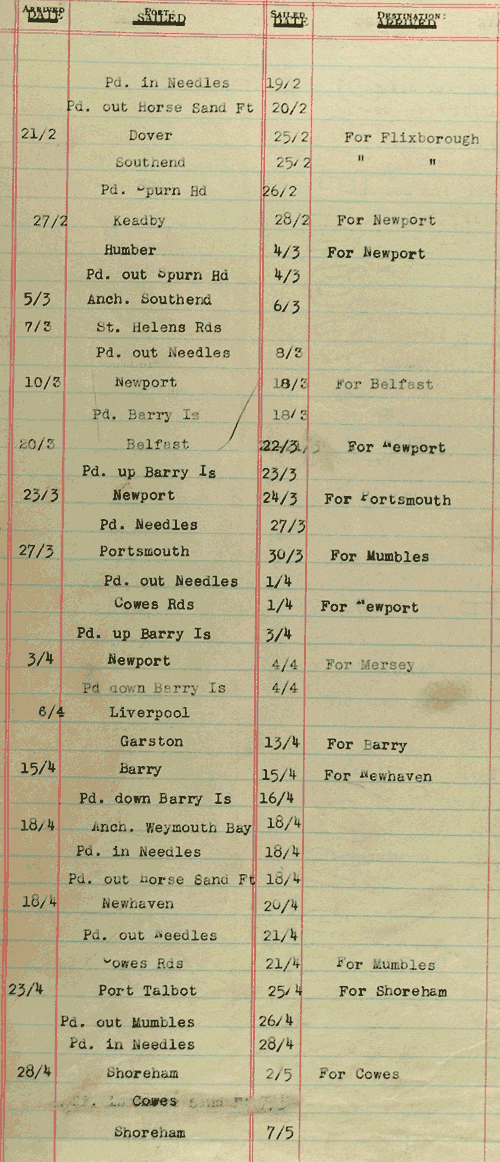 ARRIVED DATE PORT: SAILED SAILED DATE DESTINATION: ARRIVED
Pd. in Needles 19/2
Pd. out Horse Sand Ft 20/2
21/2 Dover 25/2 For Flixborough
Southend 25/2 " "
Pd. Spurn Hd 26/2
27/2 Keadby 28/2 For Newport
Humber 4/3 For Newport
Pd. out Spurn Hd 4/3
5/3 Anch. Southend 6/3
7/3 St. Helens Rds
Pd. out Needles 8/3
10/3 Newport 18/3 For Belfast
Pd. Barry Is 18/3
20/3 Belfast 22/3 For Newport
Pd. up Barry Is 23/3
23/3 Newport 24/3 For Portsmouth
Pd. Needles 27/3
27/3 Portsmouth 30/3 For Mumbles
Pd. out Needles 1/4
Cowes Rds 1/4 For Newport
Pd. up Barry Is 3/4
3/4 Newport 4/4 For Mersey
Pd down Barry Is 4/4
6/4 Liverpool
Garston 13/4 For Barry
15/4 Barry 15/4 For Newhaven
Pd. down Barry Is 16/4
18/4 Anch. Weymouth Bay 18/4
Pd. in Needles 18/4
Pd. out Horse Sand Ft 18/4
18/4 Newhaven 20/4
Pd. out Needles 21/4
Cowes Rds 21/4 For Mumbles
23/4 Port Talbot 25/4 For Shoreham
Pd. out Mumbles 26/4
Pd. in Needles 28/4
28/4 Shoreham 2/5 For Cowes
Cowes
Shoreham 7/5